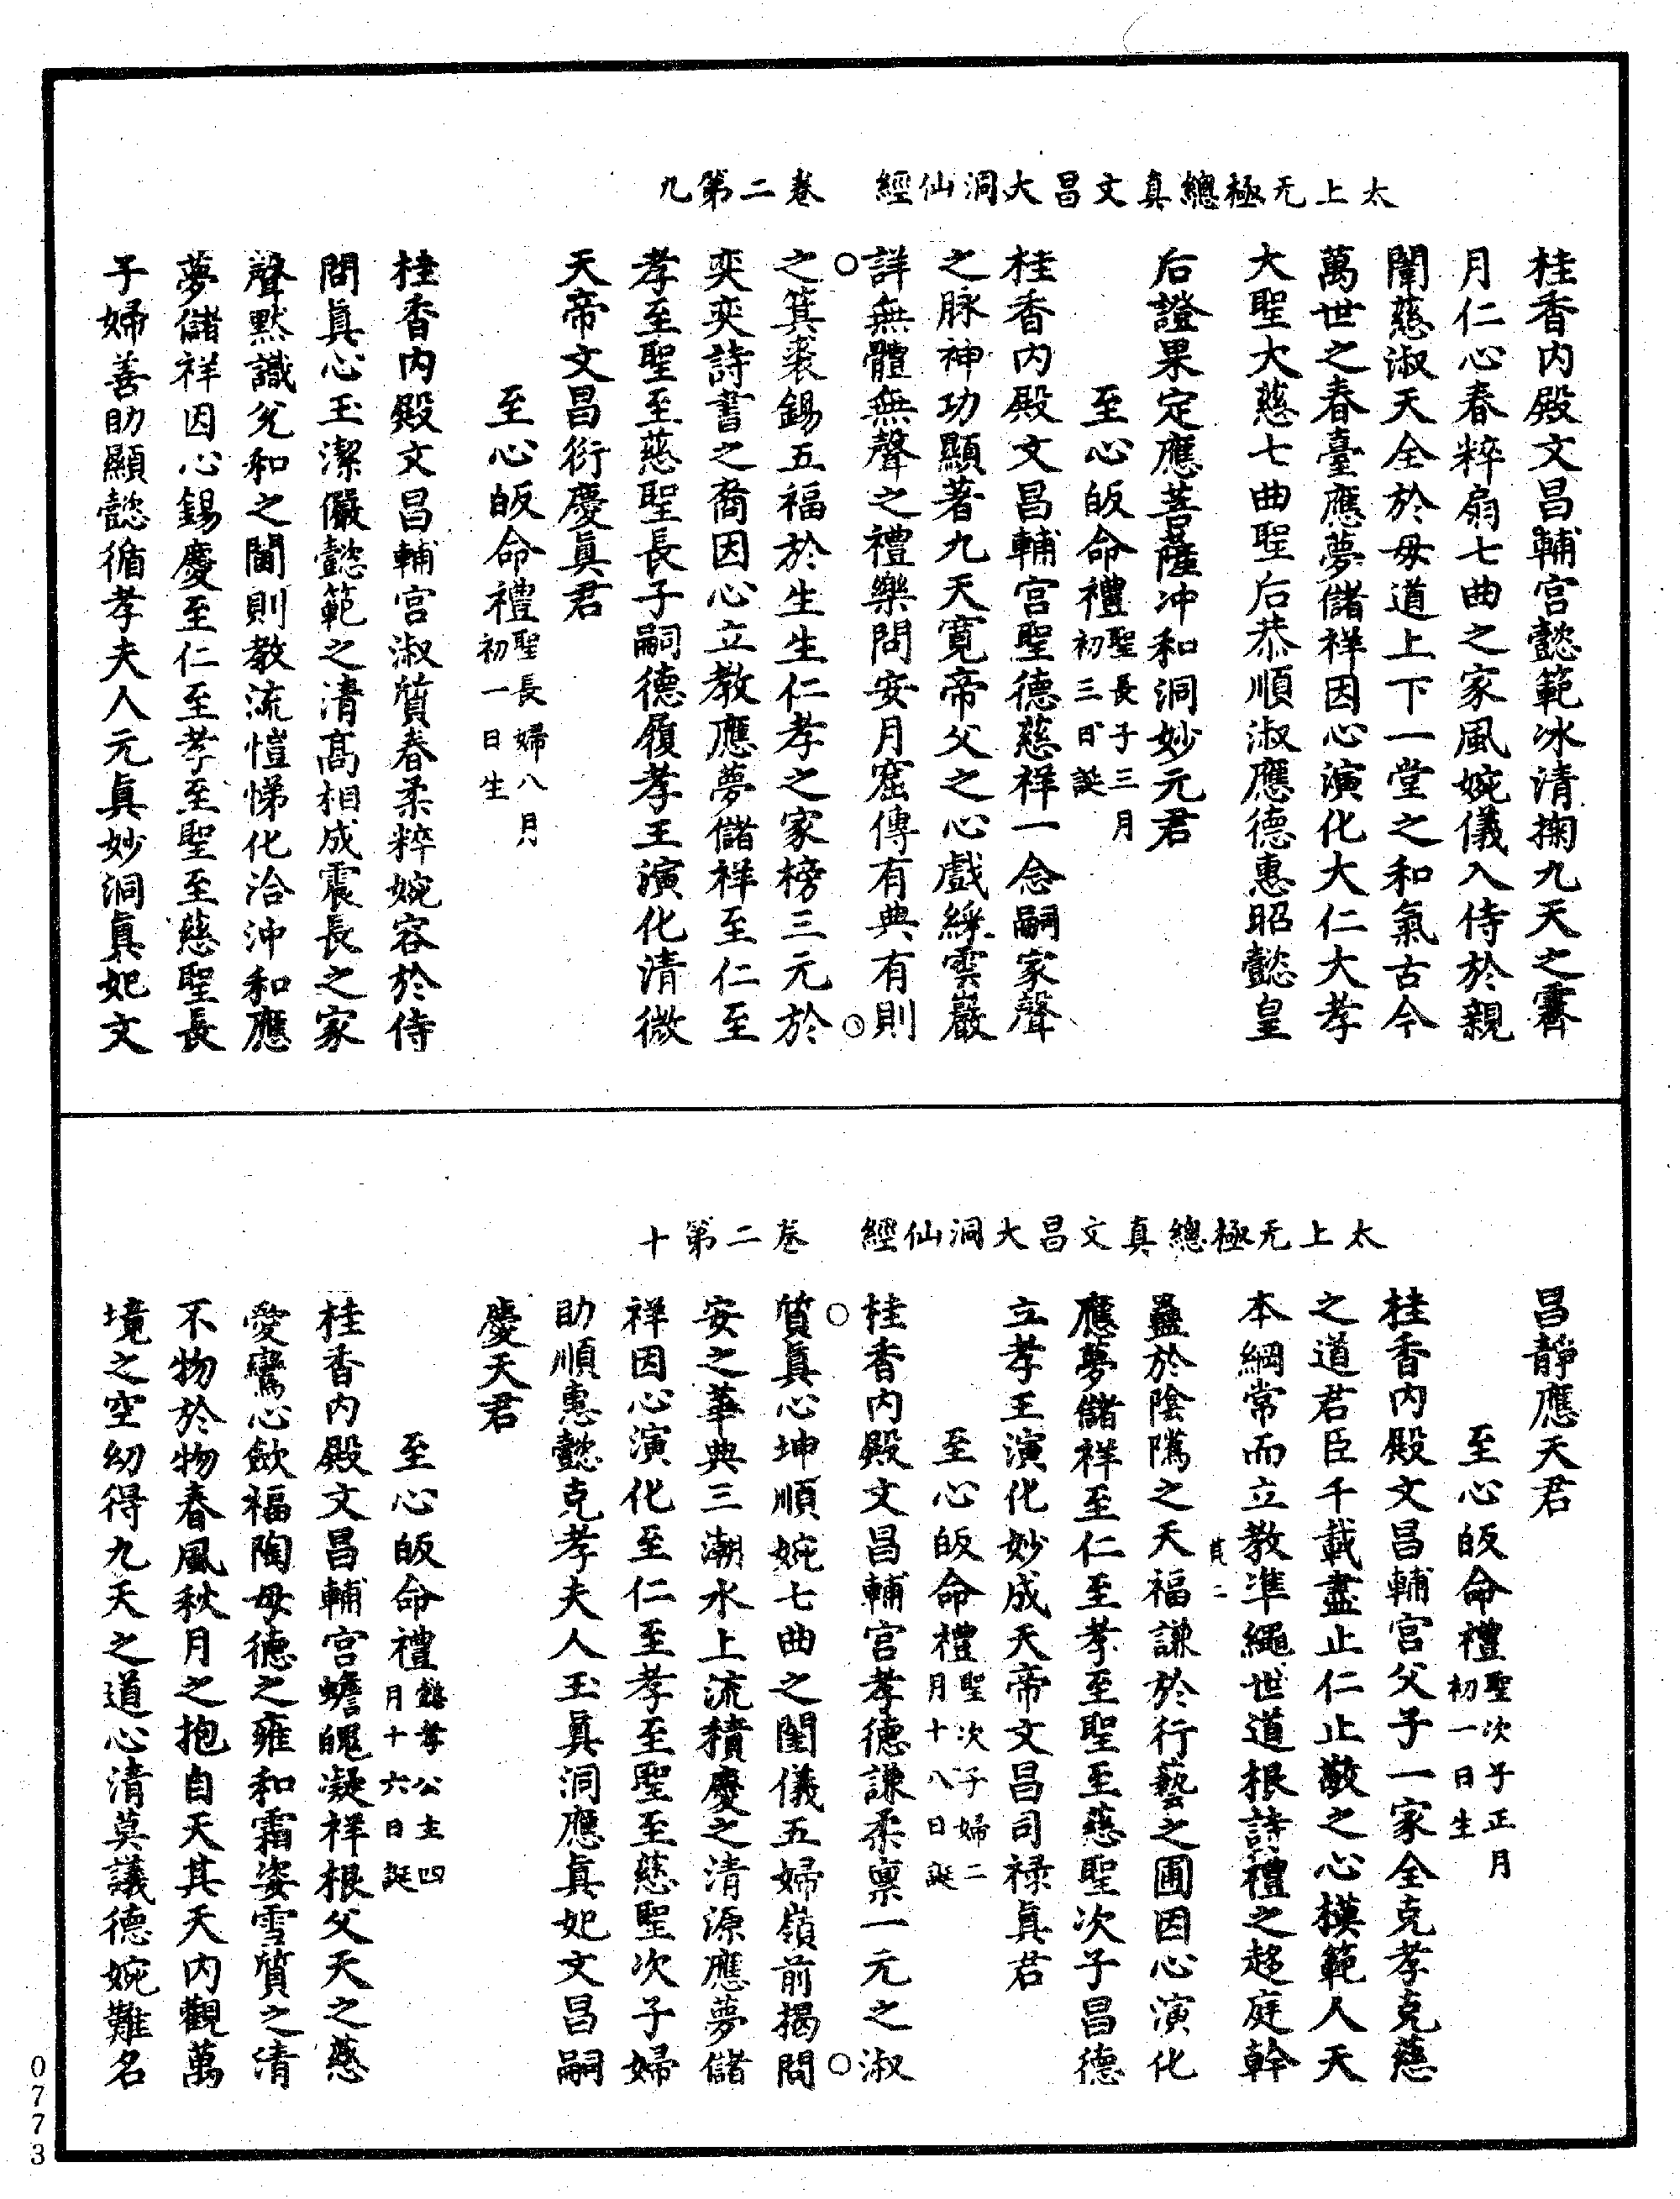 太上无極總真文昌大洞仙經　卷二第九
桂香內殿文昌輔宮懿範冰清掬九天之霽
月仁心春粹扇七曲之家風婉儀入侍於親
闈慈淑天全於母道上下一堂之和氣古今
萬世之春臺應夢儲祥因心演化大仁大孝
大聖大慈七曲聖后恭順淑應德惠昭懿皇
后證果定應菩薩沖和洞妙元君
至心皈命禮聖長子三月初三日誕
桂香內殿文昌輔宮聖德慈祥一念嗣家聲
之脉神功顯著九天寬帝父之心戲綵雲巖
詳無體無聲之禮樂問安月窟傳有典有則
之箕裘錫五福於生生仁孝之家榜三元於
奕奕詩書之裔因心立教應夢儲祥至仁至
孝至聖至慈聖長子嗣德履孝王演化清微
天帝文昌衍慶真君
至心皈命禮聖長婦八月初一日生
桂香內殿文昌輔宮淑質春柔粹婉容於侍
問真心玉潔儼懿範之清高相成震長之家
聲默識兌和之閫則教流愷悌化洽沖和應
夢儲祥因心錫慶至仁至孝至聖至慈聖長
子婦善助顯懿循孝夫人元真妙洞真妃文
太上无極總真文昌大洞仙經　卷二第十
昌靜應天君
至心皈命禮聖次子正月初一日生
桂香內殿文昌輔宮父子一家全克孝克慈
之道君臣千載盡止仁止敬之心模範人天
本綱常而立教準繩世道根詩禮之趍庭幹
蠱於陰隲之天福謙於行藝之圃因心演化
應夢儲祥至仁至孝至聖至慈聖次子昌德
立孝王演化妙成天帝文昌司祿真君
至心皈命禮聖次子婦二月十八日誕
桂香內殿文昌輔宮孝德謙柔禀一元之淑
質真心坤順婉七曲之閨儀五婦嶺前揭問
安之華典三潮水上流積慶之清源應夢儲
祥因心演化至仁至孝至聖至慈聖次子婦
助順惠懿克孝夫人玉真洞應真妃文昌嗣
慶天君
至心皈命禮懿孝公主四月十六日誕
桂香內殿文昌輔宮蟾魄凝祥根父天之慈
愛鸞心歛福陶母德之雍和霜姿雪質之清
不物於物春風秋月之抱自天其天內觀萬
境之空幼得九天之道心清莫議德婉難名
0773